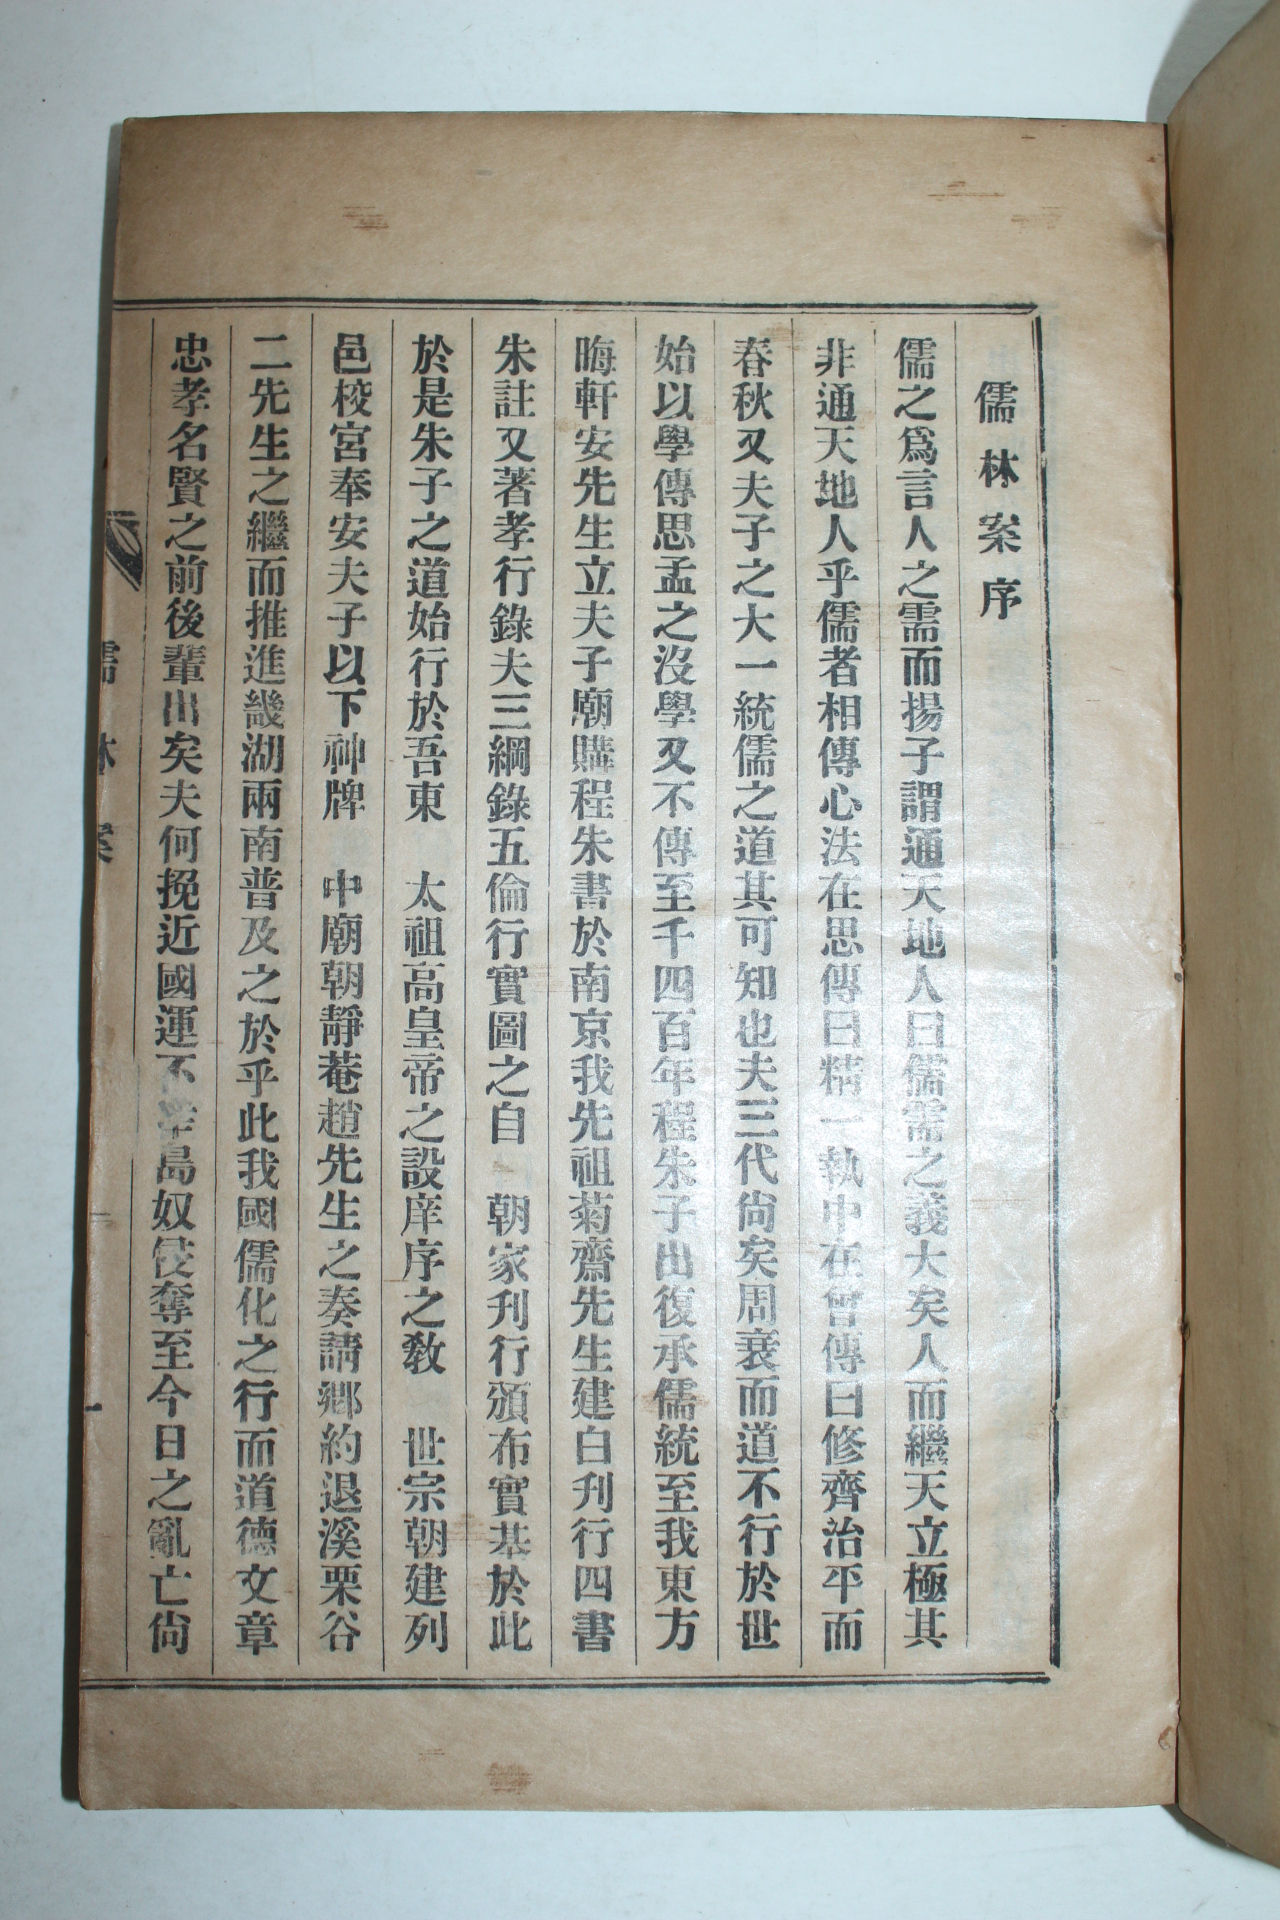 儒林案序
儒之爲言人之需而揚子謂通天地人曰儒需之義大矣人而繼天立極其
非通天地人乎儒者相傳心法在思傳曰精一執中在曾傳曰修齊治平而
春秋又夫子之大一統儒之道其可知也夫三代尙矣周衰而道不行於世
始以學傳思孟之沒學又不傳至千四百年程朱子出復承儒統至我東方
晦軒安先生立夫子廟購程朱書於南京我先祖菊齋先生建白刋行四書
朱註又著孝行錄夫三綱錄五倫行實圖之自　朝家刋行頒布實基於此
於是朱子之道始行於吾東　太祖高皇帝之設庠序之敎　世宗朝建列
邑校宮奉安夫子以下神牌　中廟朝靜菴趙先生之奏請鄕約退溪栗谷
二先生之繼而推進畿湖兩南普及之於乎此我國儒化之行而道德文章
忠孝名賢之前後輩出矣夫何挽近國運不幸島奴侵奪至今日之亂亡尙
儒林案
一